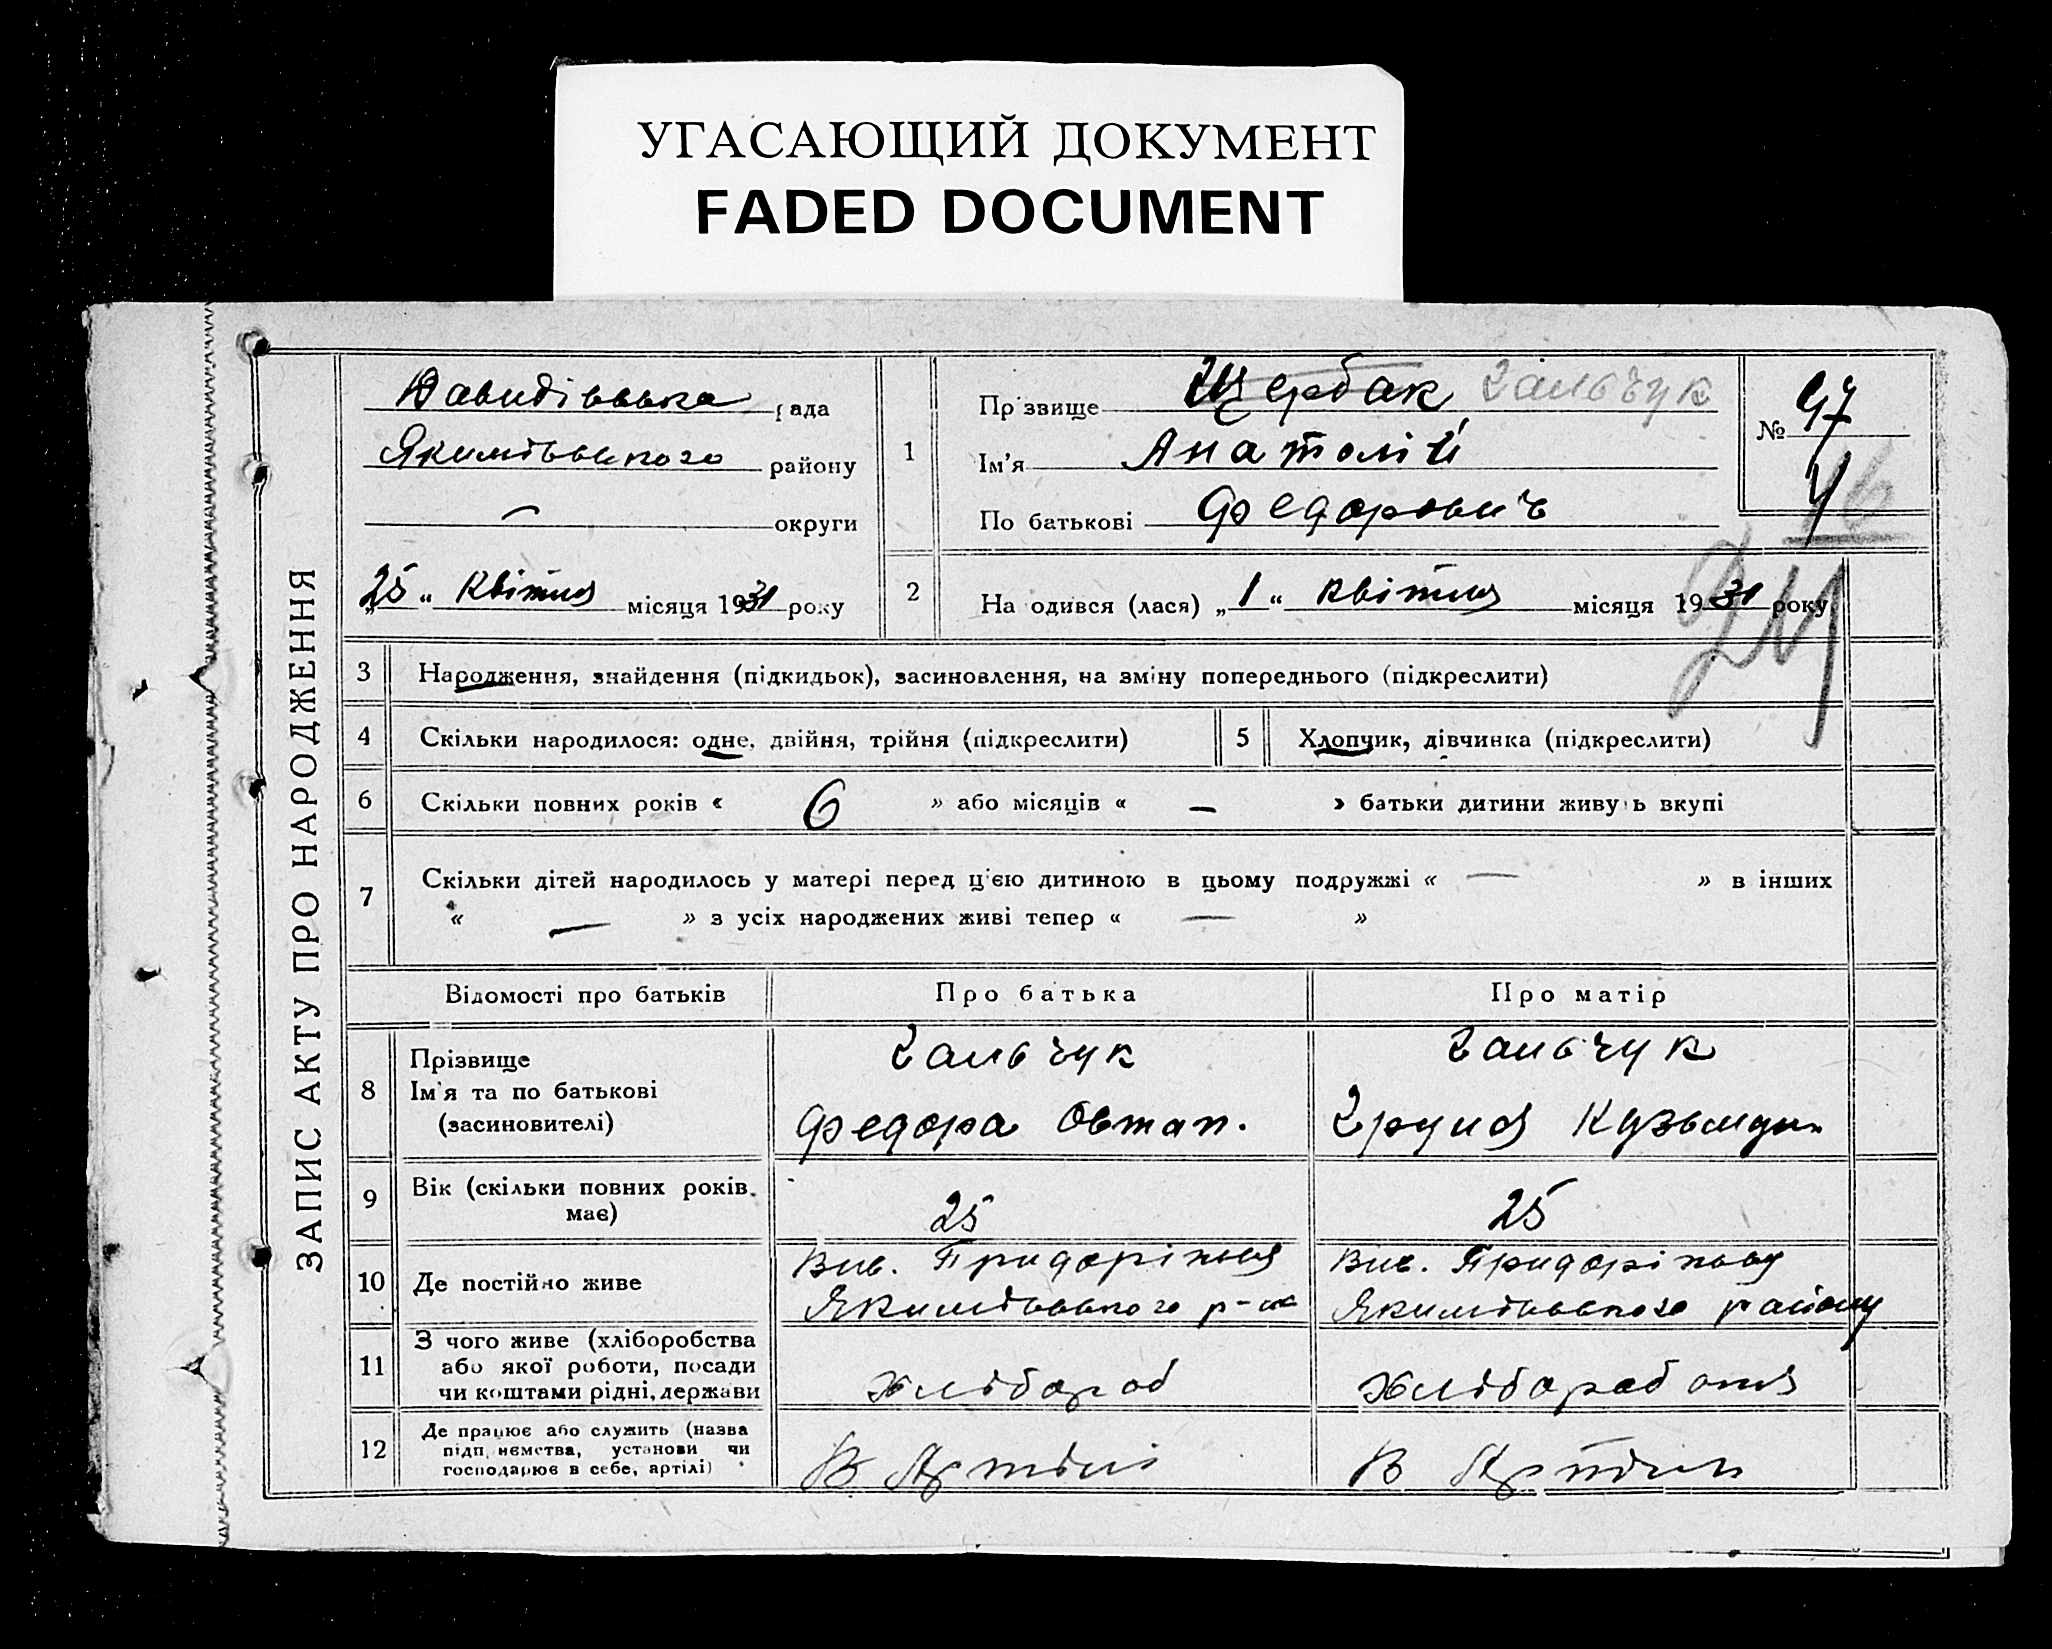 УГАСАЮЩИЙ ДОКУМЕНТ
FADED DOCUMENT
ЗАПИС АКТУ ПРО НАРОДЖЕННЯ
Давидівська рада
Якимівського району
— округи
„25“ квітня місяця 1931 року
1
Прізвище Щербак Гальчук
Ім'я Анатолій
По батькові Федорович
№ 97
46
2
На одився (лася) „1“ квітня місяця 1931 року
3 Народження, знайдення (підкидьок), засиновлення, на зміну попереднього (підкреслити)
4 Скільки народилося: одне, двійня, трійня (підкреслити)
5 Хлопчик, дівчинка (підкреслити)
6 Скільки повних років « 6 » або місяців « — » батьки дитини живуть вкупі
7 Скільки дітей народилось у матері перед цією дитиною в цьому подружжі « — » в інших
« — » з усіх народжених живі тепер « — »
Відомості про батьків Про батька Про матір
8 Прізвище Гальчук Гальчук
Ім'я та по батькові
(засиновителі) Федора Остап. Кузьмін
9 Вік (скільки повних років має) 25 25
10 Де постійно живе
Якимівського р-на Якимівського району
11 З чого живе (хліборобства
або якої роботи, посади
чи коштами рідні, держави
хлібороб
12 Де працює або служить (назва
підприємства, установи чи
господарює в себе, артілі)
В Артілі В Артілі